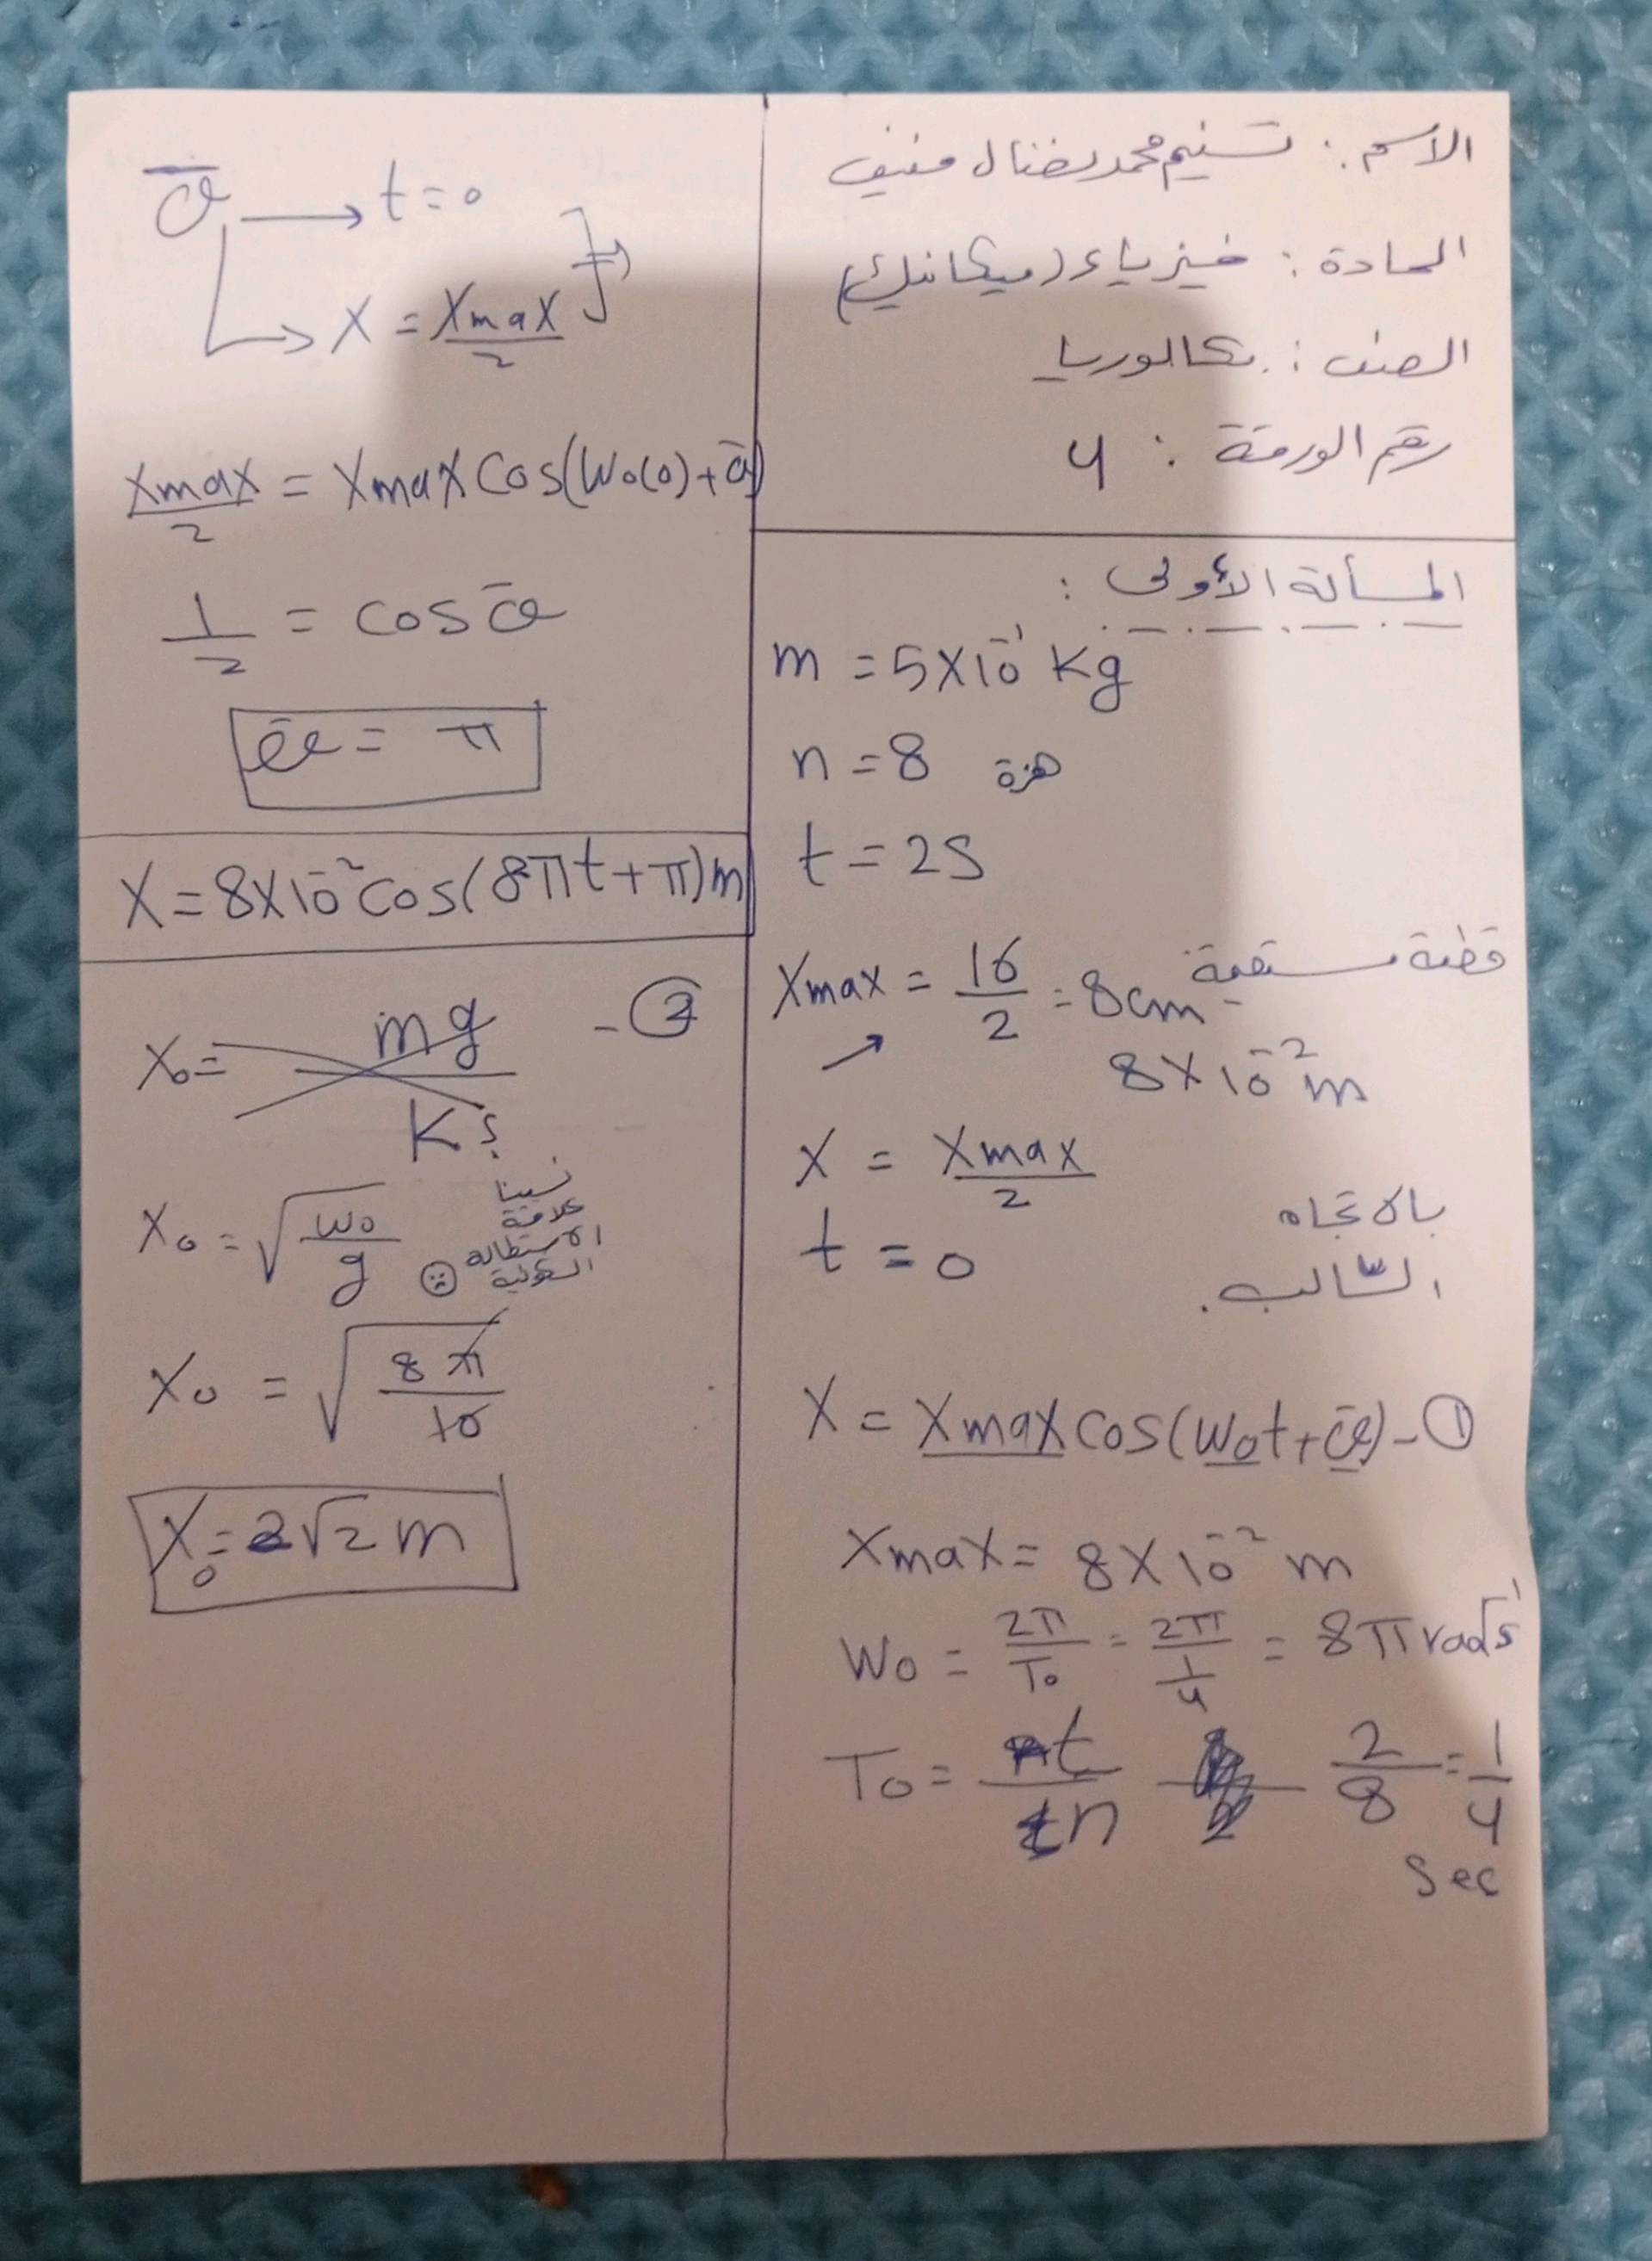 الاسم : تسنيم محمد نضال منيف
المادة : فيزياء (ميكانيك)
الصف : بكالوريا
رقم الورقة : 4
المسألة الأولى :
m = 5×10⁻¹ Kg
n = 8 هزة
t = 2s
Xmax = 16/2 = 8cm قطعة مستقيمة
8×10⁻² m
X = Xmax/2
t = 0 بالاتجاه السالب.
X = Xmax cos(ω₀t + φ̄) -①
Xmax = 8×10⁻² m
ω₀ = 2π/T₀ = 2π/(1/4) = 8π rad s⁻¹
T₀ = t/n 2/8 = 1/4
sec
φ̄ → t = 0
→ X = Xmax/2
Xmax/2 = Xmax cos(ω₀(0) + φ̄)
1/2 = cos φ̄
φ̄ = π
X = 8×10⁻² cos(8πt + π) m
-②
X₀ = mg/K ؟
X₀ = √(ω₀/g) نسينا
علاقة
الاستطالة
السكونية ☹
X₀ = √(8π/10)
X₀ = 2√2 m